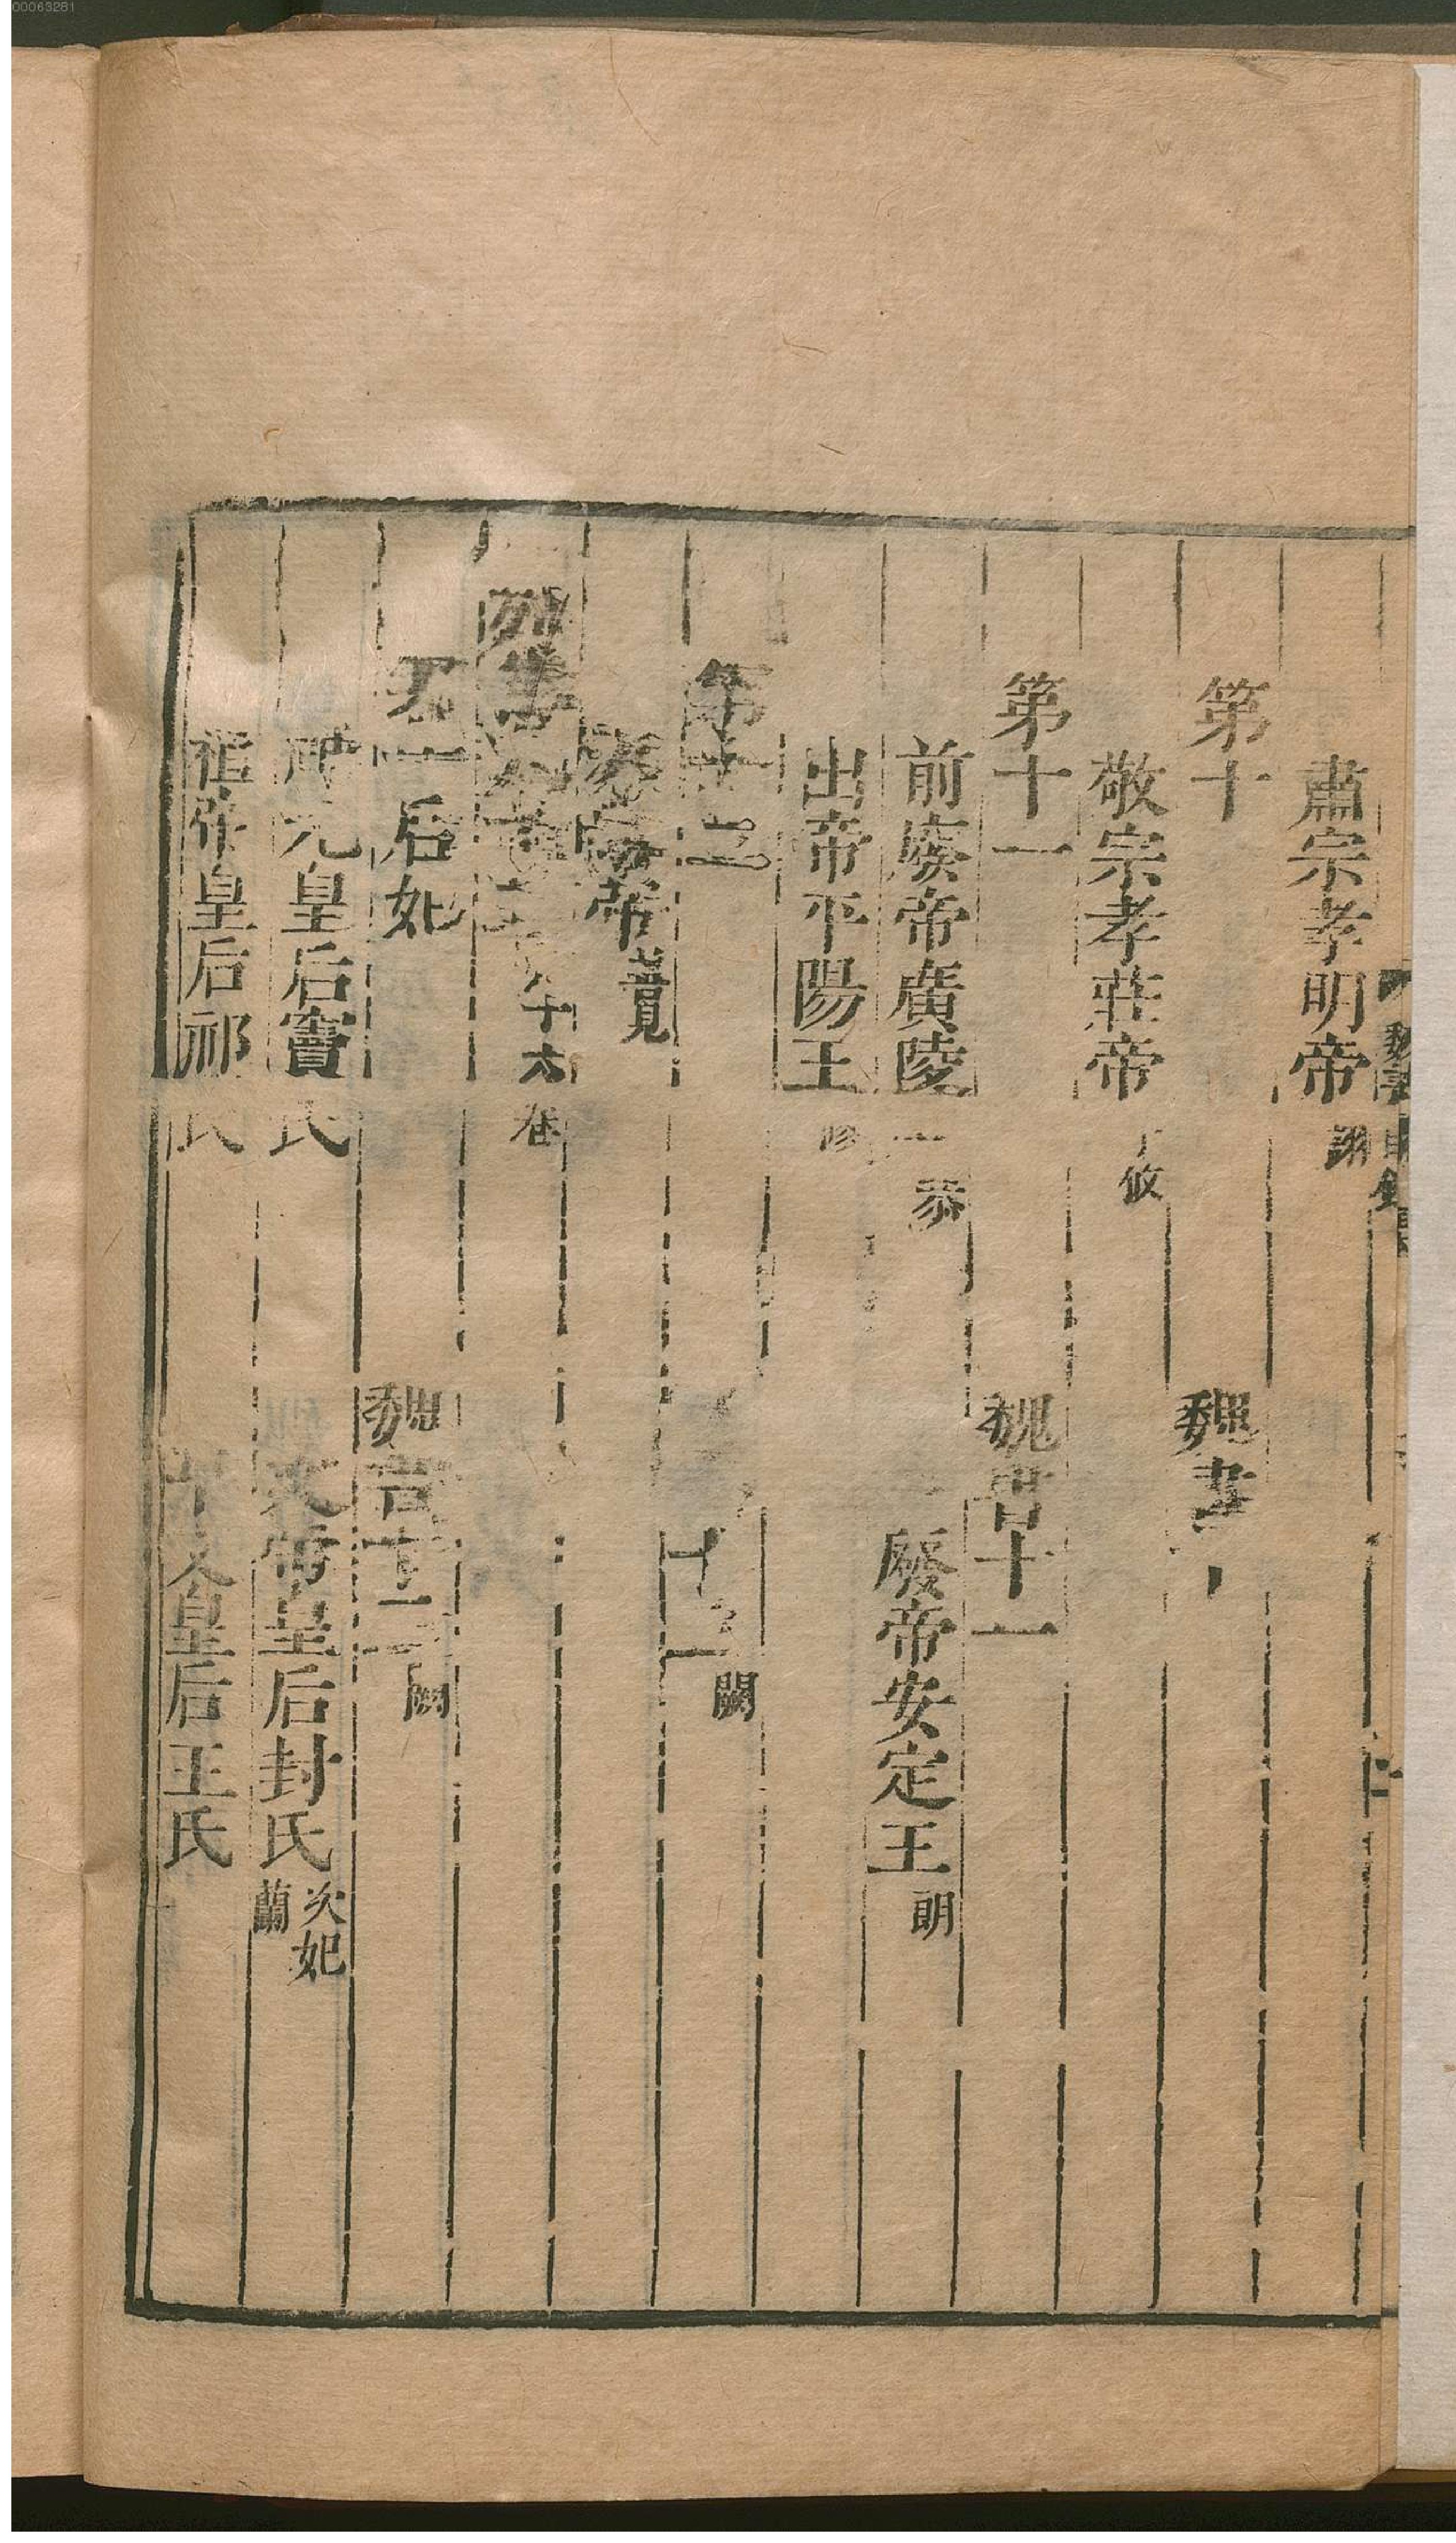 00063281
肅宗孝明帝詡
第十 魏書十
敬宗孝莊帝子攸
第十一 魏書十一
前廢帝廣陵王恭 廢帝安定王朗
出帝平陽王脩
第十二 十二闕
孝靜帝善見
列傳 九十六卷
第一后妃 魏書十三闕
神元皇后竇氏 文帝皇后封氏次妃蘭
桓帝皇后祁氏 平文皇后王氏